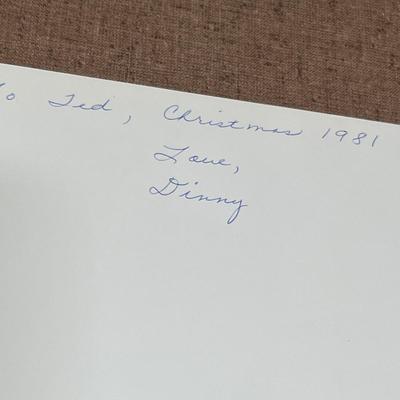 To Ted, Christmas 1981
Love,
Dinny